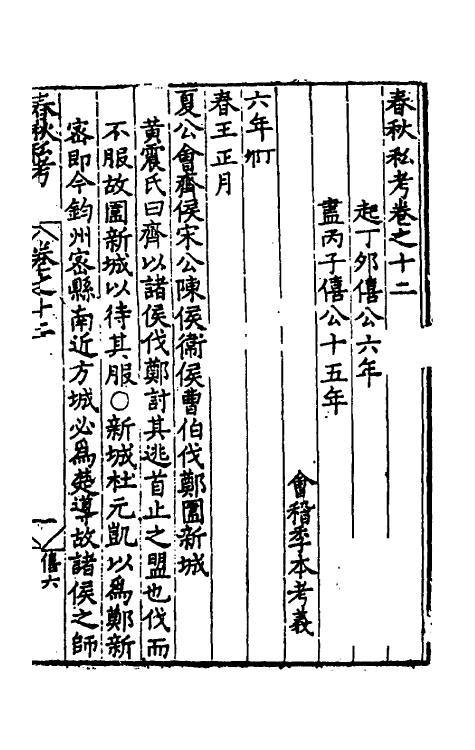 春秋私考卷之十二
起丁夘僖公六年
盡丙子僖公十五年
會稽季本考義
六年
春王正月
夏公會齊侯宋公陳侯衞侯曹伯伐鄭圍新城
黄震氏曰齊以諸侯伐鄭討其逃首止之盟也伐而
不服故圍新城以待其服○新城杜元凱以爲鄭新
密即今鈞州密縣南近方城必爲楚導故諸侯之師
春秋私考
卷之十二
一
僖六